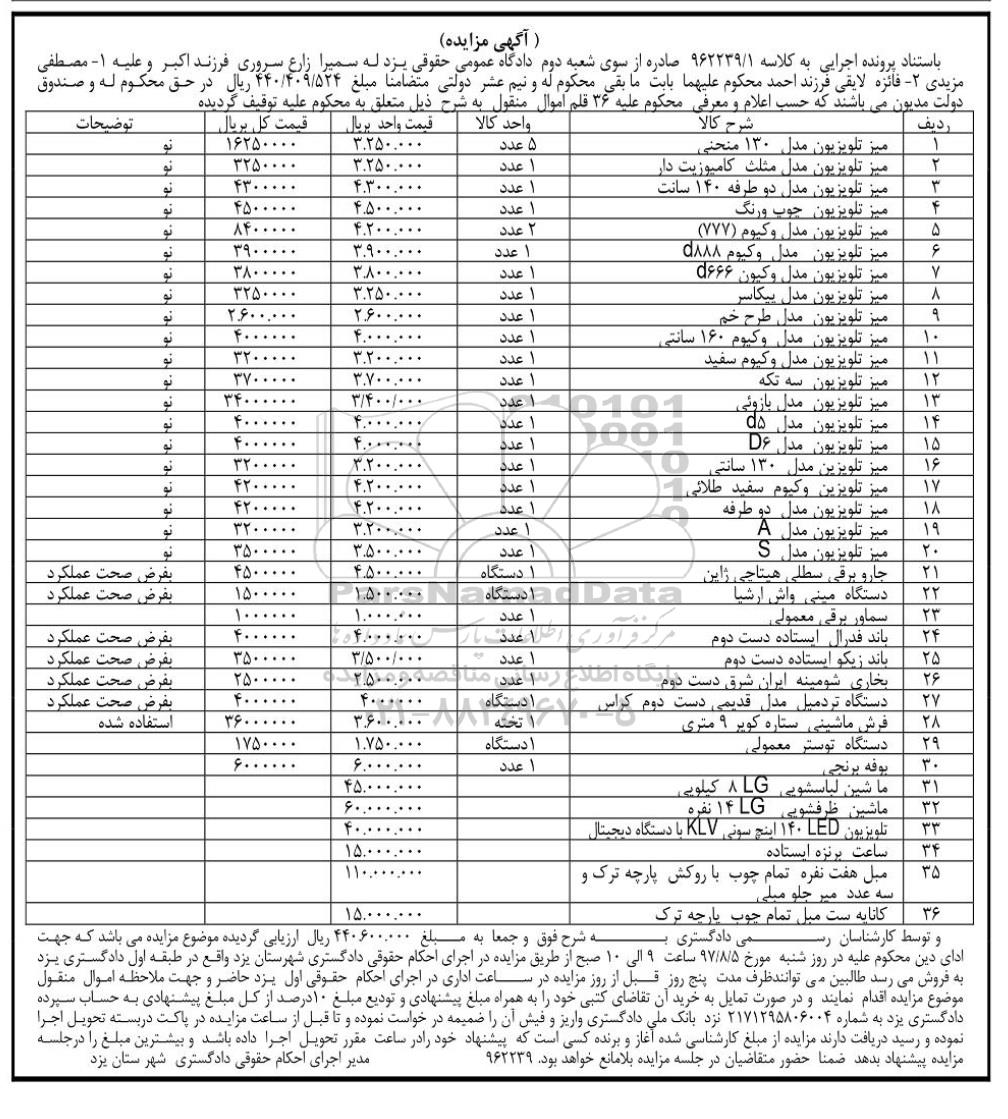 ( آگهی مزایده)
باستناد پرونده اجرایی به کلاسه ۹۶۲۲۳۹/۱ صادره از سوی شعبه دوم دادگاه عمومی حقوقی یزد له سمیرا زارع سروری فرزند اکبر و علیه ۱- مصطفی
مزیدی ۲- فائزه لایقی فرزند احمد محکوم علیهما بابت ما بقی محکوم له و نیم عشر دولتی متضامنا مبلغ ۴۴۰/۴۰۹/۵۲۴ ریال در حق محکوم له و صندوق
دولت مدیون می باشند که حسب اعلام و معرفی محکوم علیه ۳۶ قلم اموال منقول به شرح ذیل متعلق به محکوم علیه توقیف گردیده
ردیف شرح کالا واحد کالا قیمت واحد بریال قیمت کل بریال توضیحات
۱ میز تلویزیون مدل ۱۳۰ منحنی ۵ عدد ۳.۲۵۰.۰۰۰ ۱۶۲۵۰۰۰۰ نو
۲ میز تلویزیون مدل مثلث کامپوزیت دار ۱ عدد ۳.۲۵۰.۰۰۰ ۳۲۵۰۰۰۰ نو
۳ میز تلویزیون مدل دو طرفه ۱۴۰ سانت ۱ عدد ۴.۳۰۰.۰۰۰ ۴۳۰۰۰۰۰ نو
۴ میز تلویزیون چوب ورنگ ۱ عدد ۴.۵۰۰.۰۰۰ ۴۵۰۰۰۰۰ نو
۵ میز تلویزیون مدل وکیوم (۷۷۷) ۲ عدد ۴.۲۰۰.۰۰۰ ۸۴۰۰۰۰۰ نو
۶ میز تلویزیون مدل وکیوم d۸۸۸ ۱ عدد ۳.۹۰۰.۰۰۰ ۳۹۰۰۰۰۰ نو
۷ میز تلویزیون مدل وکیون d۶۶۶ ۱ عدد ۳.۸۰۰.۰۰۰ ۳۸۰۰۰۰۰ نو
۸ میز تلویزیون مدل پیکاسر ۱ عدد ۳.۲۵۰.۰۰۰ ۳۲۵۰۰۰۰ نو
۹ میز تلویزیون مدل طرح خم ۱ عدد ۲.۶۰۰.۰۰۰ ۲.۶۰۰.۰۰۰ نو
۱۰ میز تلویزیون مدل وکیوم ۱۶۰ سانتی ۱ عدد ۴.۰۰۰.۰۰۰ ۴۰۰۰۰۰۰ نو
۱۱ میز تلویزیون مدل وکیوم سفید ۱ عدد ۳.۲۰۰.۰۰۰ ۳۲۰۰۰۰۰ نو
۱۲ میز تلویزیون سه تکه ۱ عدد ۳.۷۰۰.۰۰۰ ۳۷۰۰۰۰۰ نو
۱۳ میز تلویزیون مدل بازوئی ۱ عدد ۳/۴۰۰/۰۰۰ ۳۴۰۰۰۰۰ نو
۱۴ میز تلویزیون مدل d۵ ۱ عدد ۴.۰۰۰.۰۰۰ ۴۰۰۰۰۰۰ نو
۱۵ میز تلویزیون مدل D۶ ۱ عدد ۴.۰۰۰.۰۰۰ ۴۰۰۰۰۰۰ نو
۱۶ میز تلویزین مدل ۱۳۰ سانتی ۱ عدد ۳.۲۰۰.۰۰۰ ۳۲۰۰۰۰۰ نو
۱۷ میز تلویزین وکیوم سفید طلائی ۱ عدد ۴.۲۰۰.۰۰۰ ۴۲۰۰۰۰۰ نو
۱۸ میز تلویزیون مدل دو طرفه ۱ عدد ۴.۲۰۰.۰۰۰ ۴۲۰۰۰۰۰ نو
۱۹ میز تلویزیون مدل A ۱ عدد ۳.۲۰۰.۰۰۰ ۳۲۰۰۰۰۰ نو
۲۰ میز تلویزیون مدل S ۱ عدد ۳.۵۰۰.۰۰۰ ۳۵۰۰۰۰۰ نو
۲۱ جارو برقی سطلی هیتاچی ژاپن ۱ دستگاه ۴.۵۰۰.۰۰۰ ۴۵۰۰۰۰۰ بفرض صحت عملکرد
۲۲ دستگاه مینی واش ارشیا ۱دستگاه ۱.۵۰۰.۰۰۰ ۱۵۰۰۰۰۰ بفرض صحت عملکرد
۲۳ سماور برقی معمولی ۱ عدد ۱.۰۰۰.۰۰۰ ۱۰۰۰۰۰۰
۲۴ باند فدرال ایستاده دست دوم ۱ عدد ۴.۰۰۰.۰۰۰ ۴۰۰۰۰۰۰ بفرض صحت عملکرد
۲۵ باند زیکو ایستاده دست دوم ۱ عدد ۳/۵۰۰/۰۰۰ ۳۵۰۰۰۰۰ بفرض صحت عملکرد
۲۶ بخاری شومینه ایران شرق دست دوم ۱ عدد ۲.۵۰۰.۰۰۰ ۲۵۰۰۰۰۰ بفرض صحت عملکرد
۲۷ دستگاه تردمیل مدل قدیمی دست دوم کراس ۱دستگاه ۴۰۰۰.۰۰۰ ۴۰۰۰۰۰۰ بفرض صحت عملکرد
۲۸ فرش ماشینی ستاره کویر ۹ متری ۱ تخته ۳.۶۰۰.۰۰۰ ۳۶۰۰۰۰۰۰ استفاده شده
۲۹ دستگاه توستر معمولی ۱دستگاه ۱.۷۵۰.۰۰۰ ۱۷۵۰۰۰۰
۳۰ بوفه برنجی ۱ عدد ۶.۰۰۰.۰۰۰ ۶۰۰۰۰۰۰
۳۱ ما شین لباسشویی LG ۸ کیلویی ۴۵.۰۰۰.۰۰۰
۳۲ ماشین ظرفشویی LG ۱۴ نفره ۶۰.۰۰۰.۰۰۰
۳۳ تلویزیون LED ۱۴۰ اینچ سونی KLV با دستگاه دیجیتال ۴۰.۰۰۰.۰۰۰
۳۴ ساعت برنزه ایستاده ۱۵.۰۰۰.۰۰۰
۳۵ مبل هفت نفره تمام چوب با روکش پارچه ترک و ۱۱۰.۰۰۰.۰۰۰
سه عدد میر جلو مبلی
۳۶ کاناپه ست مبل تمام چوب پارچه ترک ۱۵.۰۰۰.۰۰۰
و توسط کارشناسان رسمی دادگستری به شرح فوق و جمعا به مبلغ ۴۴۰.۶۰۰.۰۰۰ ریال ارزیابی گردیده موضوع مزایده می باشد که جهت
ادای دین محکوم علیه در روز شنبه مورخ ۹۷/۸/۵ ساعت ۹ الی ۱۰ صبح از طریق مزایده در اجرای احکام حقوقی دادگستری شهرستان یزد واقع در طبقه اول دادگستری یزد
به فروش می رسد طالبین می توانندظرف مدت پنج روز قبل از روز مزایده در ساعت اداری در اجرای احکام حقوقی اول یزد حاضر و جهت ملاحظه اموال منقول
موضوع مزایده اقدام نمایند و در صورت تمایل به خرید آن تقاضای کتبی خود را به همراه مبلغ پیشنهادی و تودیع مبلغ ۱۰درصد از کل مبلغ پیشنهادی به حساب سپرده
دادگستری یزد به شماره ۲۱۷۱۲۹۵۸۰۶۰۰۴ نزد بانک ملی دادگستری واریز و فیش آن را ضمیمه در خواست نموده و تا قبل از ساعت مزایده در پاکت دربسته تحویل اجرا
نموده و رسید دریافت دارند مزایده از مبلغ کارشناسی شده آغاز و برنده کسی است که پیشنهاد خود رادر ساعت مقرر تحویل اجرا داده باشد و بیشترین مبلغ را درجلسه
مزایده پیشنهاد بدهد ضمنا حضور متقاضیان در جلسه مزایده بلامانع خواهد بود. ۹۶۲۲۳۹ مدیر اجرای احکام حقوقی دادگستری شهر ستان یزد
ParsNamadData
مرکز فرآوری اطلاعات پارس نماد داده ها
پایگاه اطلاع رسانی مناقصه و مزایده
۰۲۱-۸۸۳۴۹۶۷۰-۵